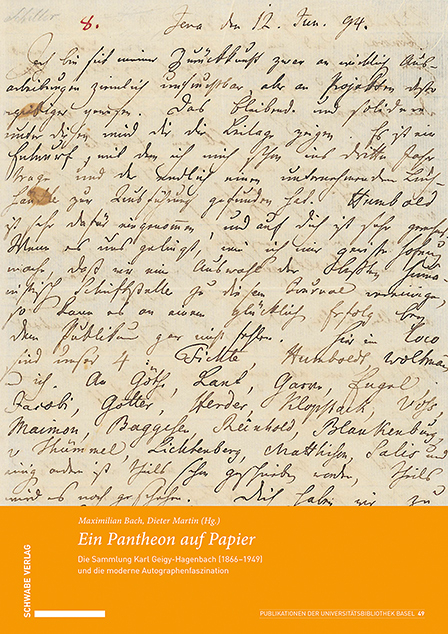 Schiller
8. Jena den 12. Jun. 94.
Ich bin seit meiner Zurückkunft zwar an wirklich Aus-
arbeitungen ziemlich unfruchtbar, aber an Projekten desto
ergiebiger gewesen. Das bleibende und solideste
unter diesen wird dir die Beilage zeigen. Es ist ein
Entwurf, mit dem ich mich schon ins dritte Jahr
trage und der endlich einen unternehmenden Buch-
händler zur Ausführung gefunden hat. Humboldt
ist sehr dafür eingenommen, und auf dich ist sehr gerechnet.
Wenn es uns gelingt, wie ich mir gewisse Hofnung
mache, daß wir eine Auswahl der besten huma-
nistisch Schriftsteller zu diesem Journal vereinigen
so kann es an einem glücklich Erfolg bey
dem Publikum gar nicht fehlen. Hier in Loco
sind unser 4 Fichte, Humboldt, Woltmann
u ich. An Göthe, Kant, Garve, Engel
Jacobi, Gotter, Herder, Klopstock, Voß
Maimon, Baggesen, Reinhold, Blankenburg
v Thümmel, Lichtenberg, Matthison, Salis und
einig andere ist theils schon geschrieben worden, theils
wird es noch geschehen. Dich haben wir zu
Maximilian Bach, Dieter Martin (Hg.)
Ein Pantheon auf Papier
Die Sammlung Karl Geigy-Hagenbach (1866–1949)
und die moderne Autographenfaszination
SCHWABE VERLAG
PUBLIKATIONEN DER UNIVERSITÄTSBIBLIOTHEK BASEL 49